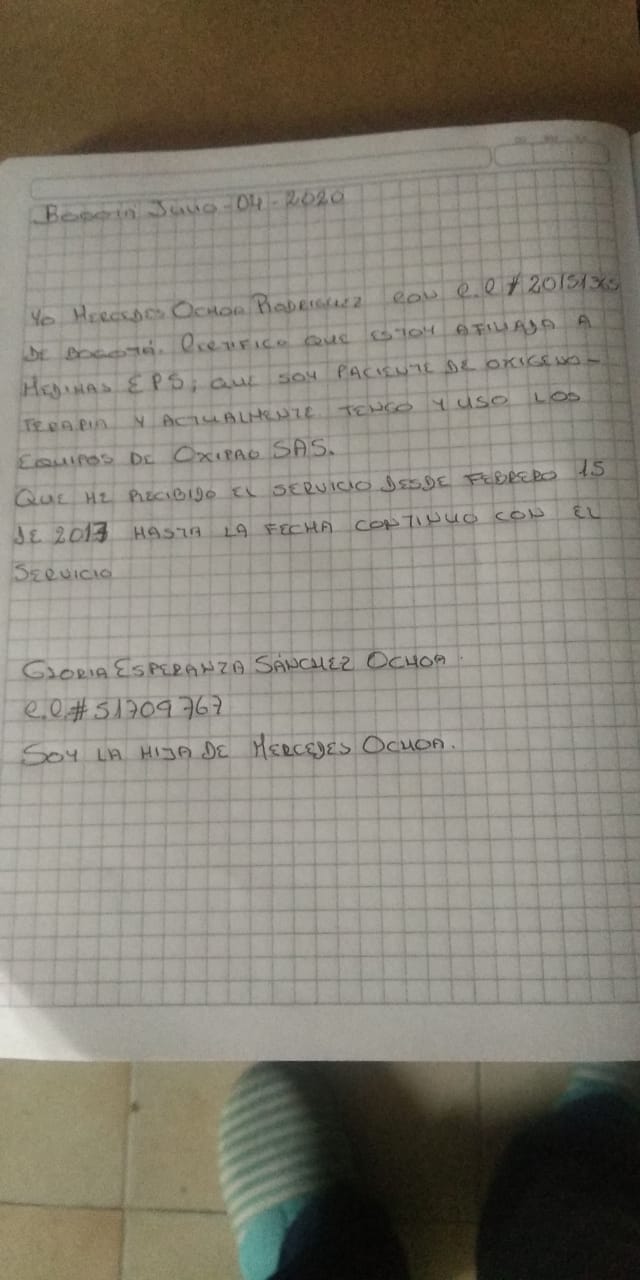 Junio-04-2020
Yo Mercedes Ochoa Rodriguez con c.c #
de Bogotá. Certifico que estoy afiliada a
Medimas EPS, que soy paciente de oxigeno-
terapia y actualmente tengo y uso los
equipos de Oxipro SAS.
Que he recibido el servicio desde febrero 15
de 2017 hasta la fecha continuo con el
servicio
Gloria Esperanza Sánchez Ochoa.
c.c.# 51709767
Soy la hija de Mercedes Ochoa.